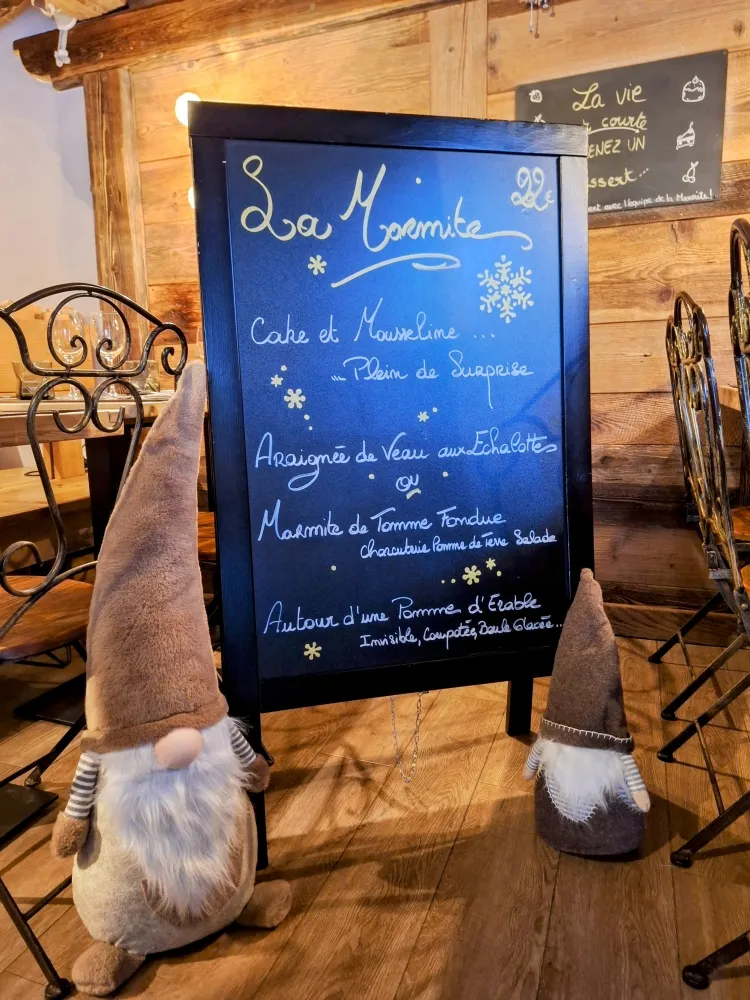 La Marmite 22€
Cake et Mousseline ...
... Plein de Surprise
Araignée de Veau aux Echalottes
ou
Marmite de Tomme Fondue
Charcuterie Pomme de Terre Salade
Autour d'une Pomme d'Erable
Invisible, Compotée, Boule Glacée...
La vie
courte
ENEZ UN
ssert...
ert avec l'équipe de la Marmite!